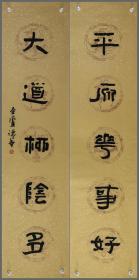 平原華事好
大道柳陰多